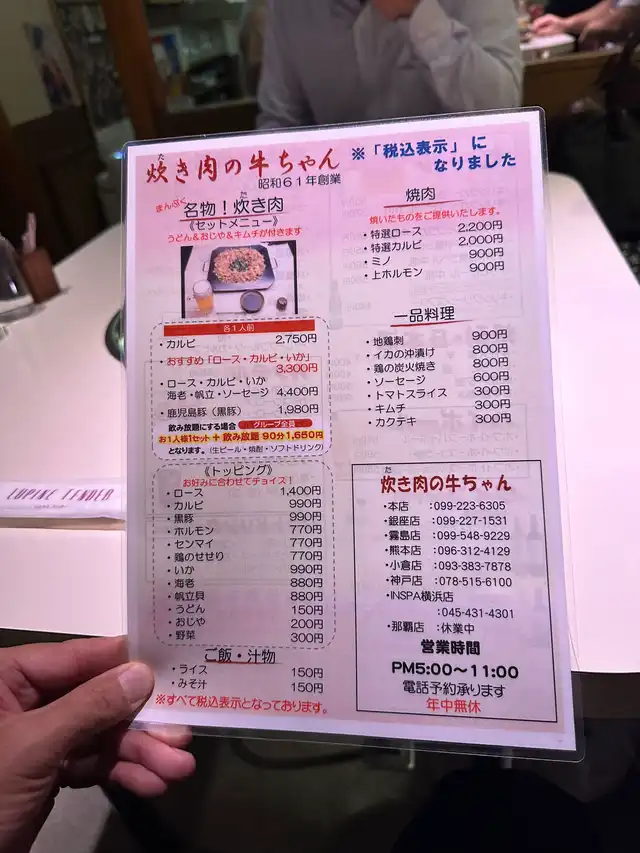 炊き肉の牛ちゃん
た
昭和61年創業
※「税込表示」に
なりました
まんぷく
名物！炊き肉
た
《セットメニュー》
うどん＆おじや＆キムチが付きます
各1人前
・カルビ 2,750円
・おすすめ「ロース・カルビ・いか」
3,300円
・ロース・カルビ・いか
海老・帆立・ソーセージ 4,400円
・鹿児島豚（黒豚） 1,980円
飲み放題にする場合 グループ全員
お1人様1セット＋飲み放題 90分1,650円
となります。（生ビール・焼酎・ソフトドリンク）
《トッピング》
お好みに合わせてチョイス！
・ロース 1,400円
・カルビ 990円
・黒豚 990円
・ホルモン 770円
・センマイ 770円
・鶏のせせり 770円
・いか 990円
・海老 880円
・帆立貝 880円
・うどん 150円
・おじや 200円
・野菜 300円
ご飯・汁物
・ライス 150円
・みそ汁 150円
※すべて税込表示となっております。
焼肉
焼いたものをご提供いたします。
・特選ロース 2,200円
・特選カルビ 2,000円
・ミノ 900円
・上ホルモン 900円
一品料理
・地鶏刺 900円
・イカの沖漬け 800円
・鶏の炭火焼き 800円
・ソーセージ 600円
・トマトスライス 300円
・キムチ 300円
・カクテキ 300円
た
炊き肉の牛ちゃん
・本店 :099-223-6305
・銀座店 :099-227-1531
・霧島店 :099-548-9229
・熊本店 :096-312-4129
・小倉店 :093-383-7878
・神戸店 :078-515-6100
・INSPA横浜店
:045-431-4301
・那覇店 :休業中
営業時間
PM5:00〜11:00
電話予約承ります
年中無休